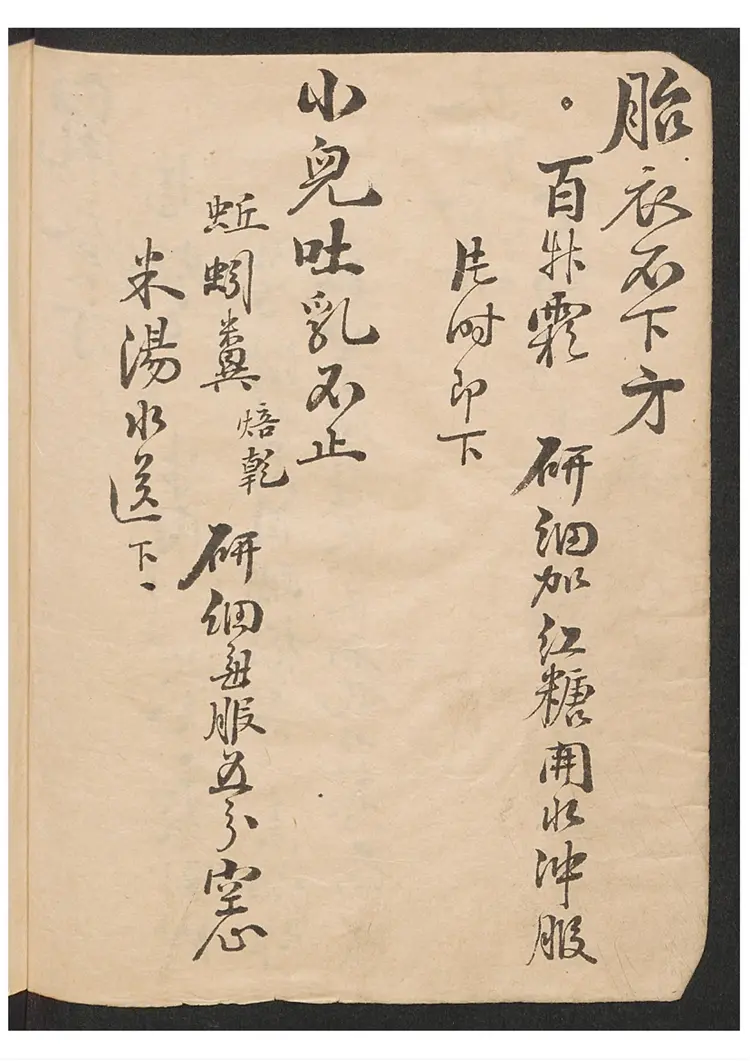 胎衣不下方
百草霜 研細加紅糖開水沖服
片时即下
小兒吐乳不止
蚯蚓糞 焙乾 研細每服五分空心
米湯水送下